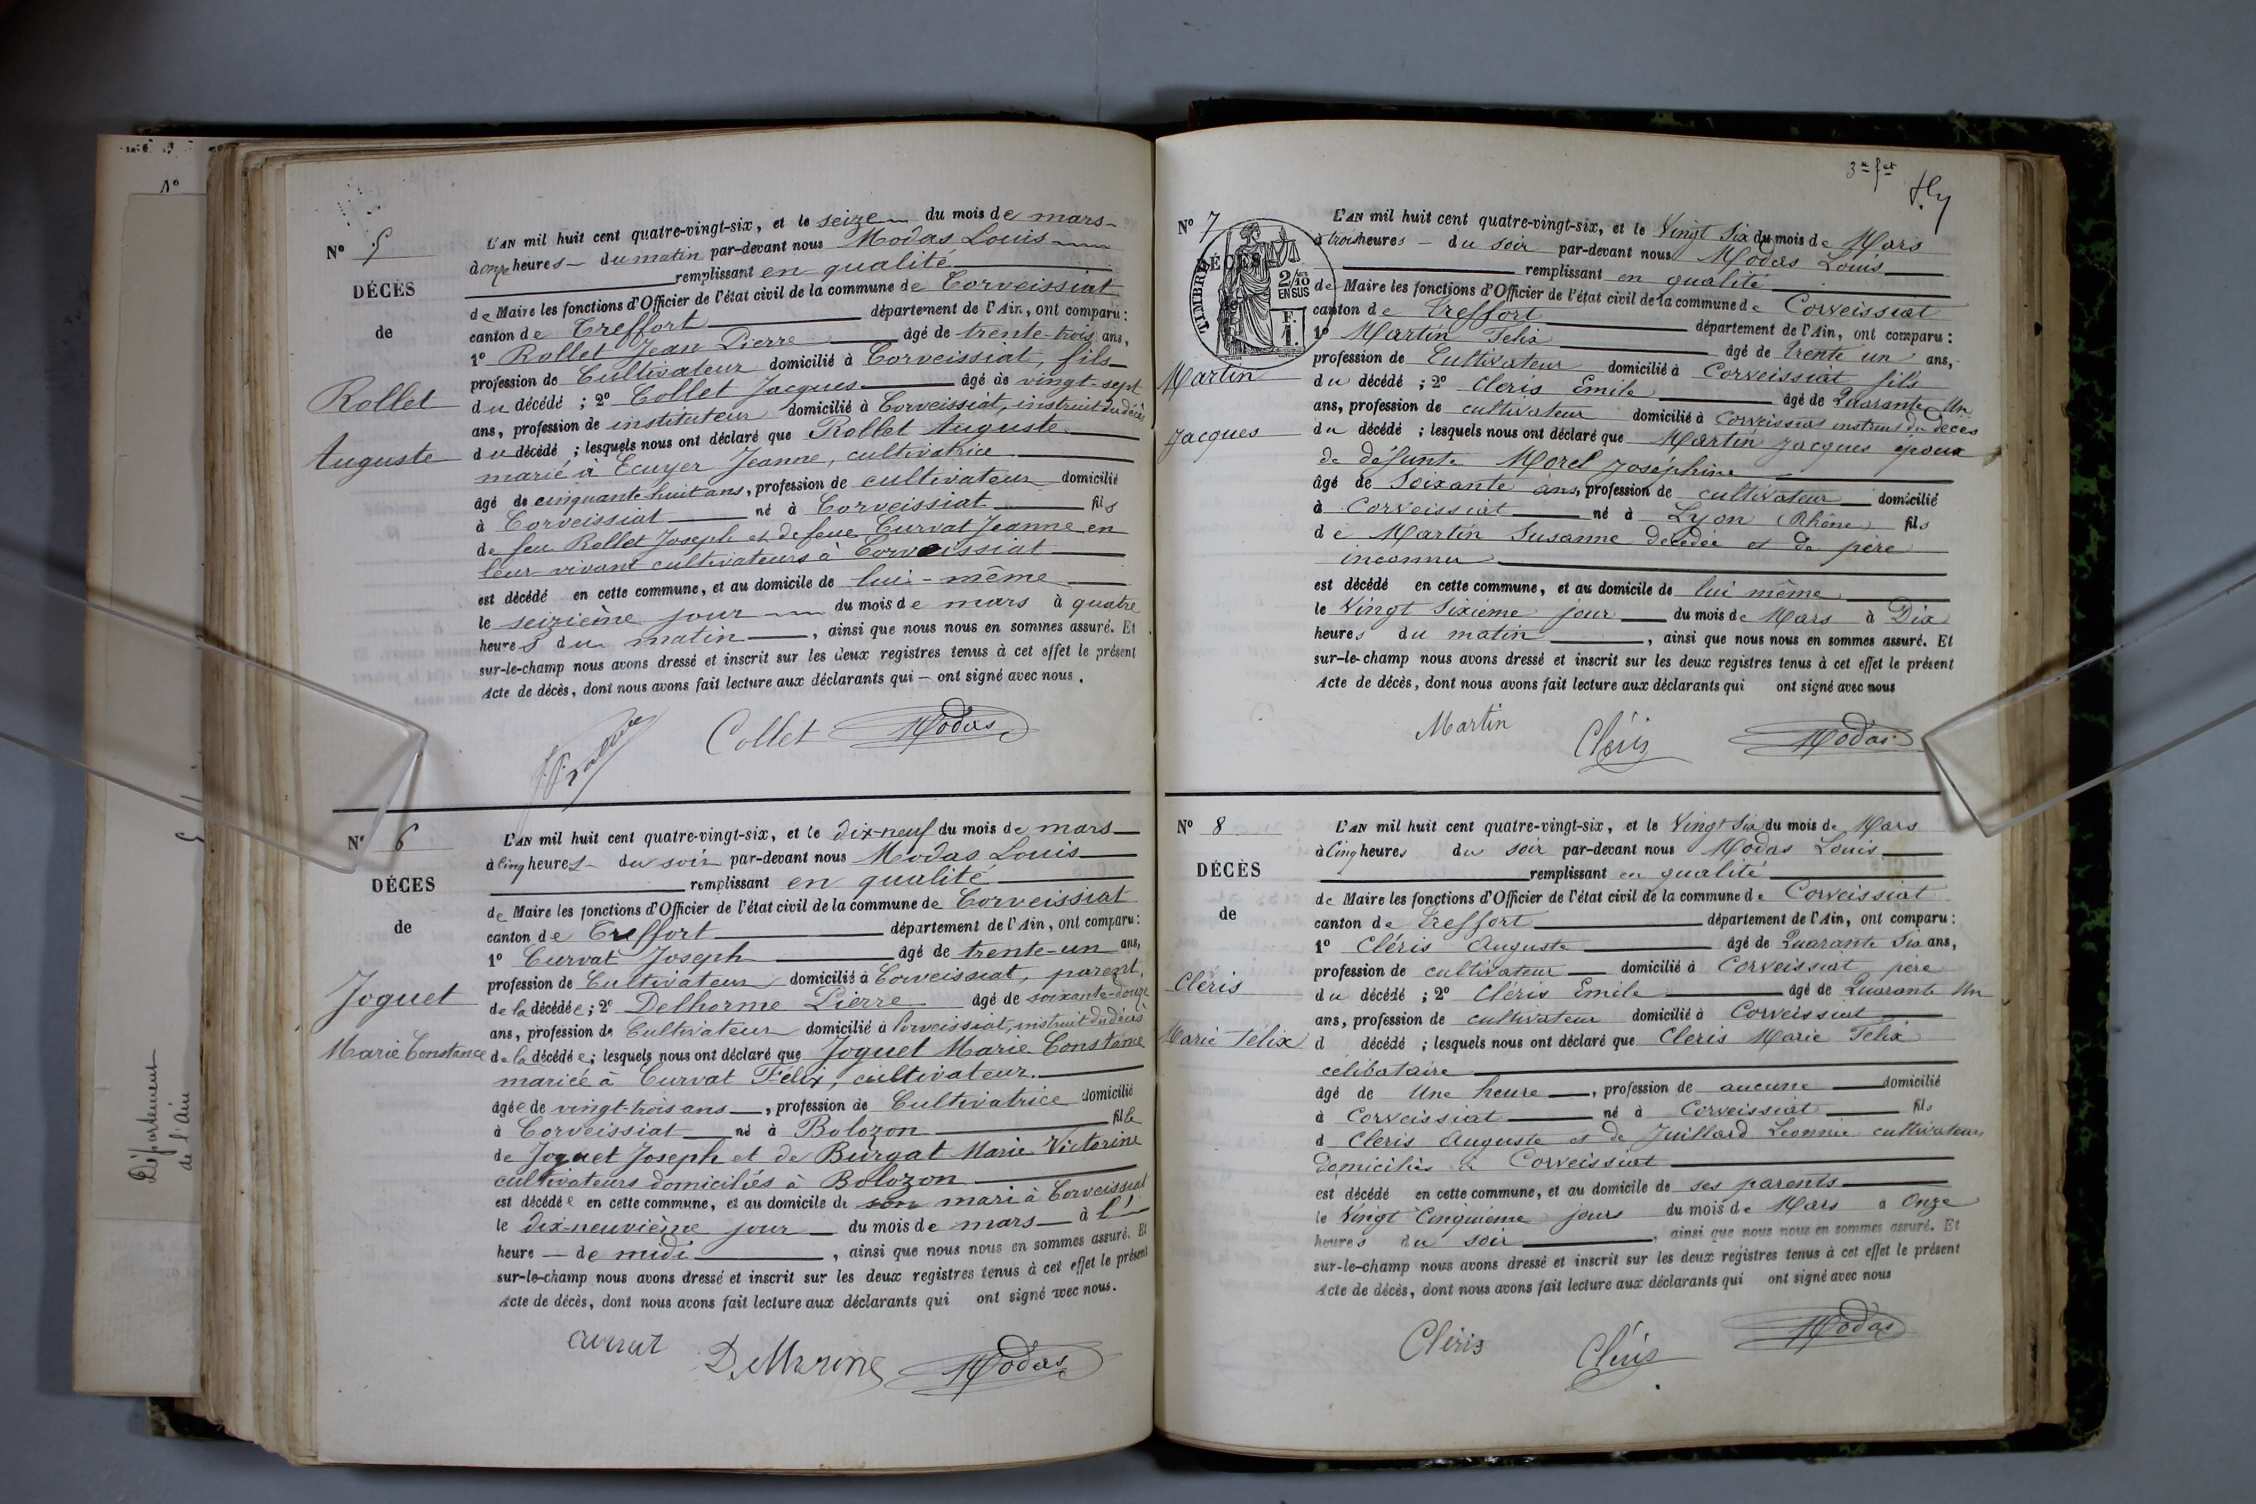 Nº 5
DÉCÈS
de
Rollet
Auguste
L'AN mil huit cent quatre-vingt-six, et le seize du mois de mars
à onze heures du matin par-devant nous Modas Louis
remplissant en qualité
de Maire les fonctions d'Officier de l'état civil de la commune de Corveissiat
canton de Treffort département de l'Ain, ont comparu :
1º Rollet Jean Pierre âgé de trente-trois ans,
profession de Cultivateur domicilié à Corveissiat, fils
du décédé ; 2º Collet Jacques âgé de vingt-sept
ans, profession de instituteur domicilié à Corveissiat, instruit du décès
du décédé ; lesquels nous ont déclaré que Rollet Auguste
marié à Ecuyer Jeanne, cultivatrice
âgé de cinquante-huit ans, profession de cultivateur domicilié
à Corveissiat né à Corveissiat fils
de feu Rollet Joseph et de feue Curvat Jeanne en
leur vivant cultivateurs à Corveissiat
est décédé en cette commune, et au domicile de lui-même
le seizième jour du mois de mars à quatre
heures du matin, ainsi que nous nous en sommes assuré. Et
sur-le-champ nous avons dressé et inscrit sur les deux registres tenus à cet effet le présent
Acte de décès, dont nous avons fait lecture aux déclarants qui — ont signé avec nous.
Collet Modas
Nº 6
DÉCES
de
Joguet
Marie Constance
L'AN mil huit cent quatre-vingt-six, et le dix-neuf du mois de mars
à cinq heures du soir par-devant nous Modas Louis
remplissant en qualité
de Maire les fonctions d'Officier de l'état civil de la commune de Corveissiat
canton de Treffort département de l'Ain, ont comparu :
1º Curvat Joseph âgé de trente-un ans,
profession de Cultivateur domicilié à Corveissiat, parent
de la décédée ; 2º Delhorme Pierre âgé de soixante-douze
ans, profession de Cultivateur domicilié à Corveissiat, instruit du décès
de la décédée ; lesquels nous ont déclaré que Joguet Marie Constance
mariée à Curvat Félix, cultivateur.
âgée de vingt-trois ans, profession de Cultivatrice domicilié
à Corveissiat né à Bolozon fille
de Joguet Joseph et de Burgat Marie Victorine
cultivateurs domiciliés à Bolozon
est décédée en cette commune, et au domicile de son mari à Corveissiat
le dix-neuvième jour du mois de mars à l'
heure — de midi, ainsi que nous nous en sommes assuré. Et
sur-le-champ nous avons dressé et inscrit sur les deux registres tenus à cet effet le présent
Acte de décès, dont nous avons fait lecture aux déclarants qui ont signé avec nous.
curvat Delhorme Modas
Département
de l'Ain
Nº 7
DÉCÈS
de
TIMBRE
2/10
EN SUS
F.
1.
Martin
Jacques
L'AN mil huit cent quatre-vingt-six, et le Vingt Six du mois de Mars
à trois heures du soir par-devant nous Modas Louis
remplissant en qualité
de Maire les fonctions d'Officier de l'état civil de la commune de Corveissiat
canton de Treffort département de l'Ain, ont comparu :
1º Martin Felix âgé de trente un ans,
profession de Cultivateur domicilié à Corveissiat fils
du décédé ; 2º Cleris Emile âgé de Quarante Un
ans, profession de cultivateur domicilié à Corveissiat instruit du décès
du décédé ; lesquels nous ont déclaré que Martin Jacques époux
de défunte Morel Joséphine
âgé de Soixante ans, profession de cultivateur domicilié
à Corveissiat né à Lyon (Rhône) fils
de Martin Susanne décédée et de père
inconnu
est décédé en cette commune, et au domicile de lui même
le Vingt Sixième jour du mois de Mars à Dix
heures du matin, ainsi que nous nous en sommes assuré. Et
sur-le-champ nous avons dressé et inscrit sur les deux registres tenus à cet effet le présent
Acte de décès, dont nous avons fait lecture aux déclarants qui ont signé avec nous
Martin Cléris Modas
Nº 8
DÉCÈS
de
Cléris
Marie Félix
L'AN mil huit cent quatre-vingt-six, et le Vingt Six du mois de Mars
à Cinq heures du soir par-devant nous Modas Louis
remplissant en qualité
de Maire les fonctions d'Officier de l'état civil de la commune de Corveissiat
canton de Treffort département de l'Ain, ont comparu :
1º Cléris Auguste âgé de Quarante Six ans,
profession de cultivateur domicilié à Corveissiat père
du décédé ; 2º Cléris Emile âgé de Quarante Un
ans, profession de cultivateur domicilié à Corveissiat
d décédé ; lesquels nous ont déclaré que Cleris Marie Felix
célibataire
âgé de Une heure, profession de aucune domicilié
à Corveissiat né à Corveissiat fils
d Cleris Auguste et de Juillard Léonnie cultivateurs
domiciliés à Corveissiat
est décédé en cette commune, et au domicile de ses parents
le Vingt Cinquième jour du mois de Mars à Onze
heures du soir, ainsi que nous nous en sommes assuré. Et
sur-le-champ nous avons dressé et inscrit sur les deux registres tenus à cet effet le présent
Acte de décès, dont nous avons fait lecture aux déclarants qui ont signé avec nous
Cléris Cléris Modas